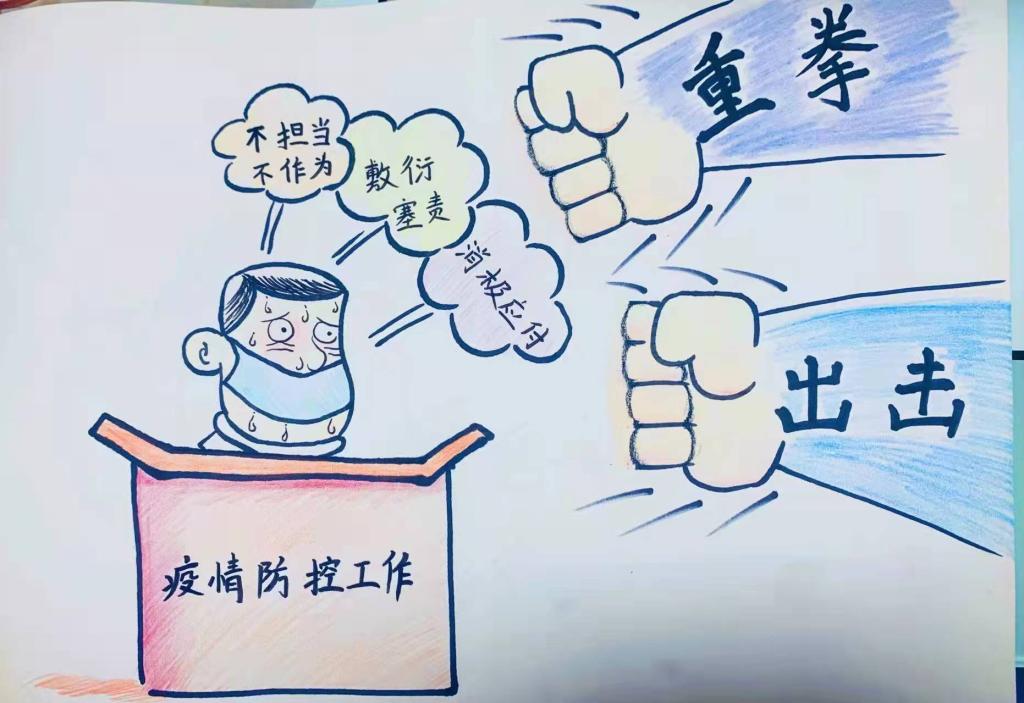 重拳
不担当
不作为
敷衍
塞责
消极应付
出击
疫情防控工作